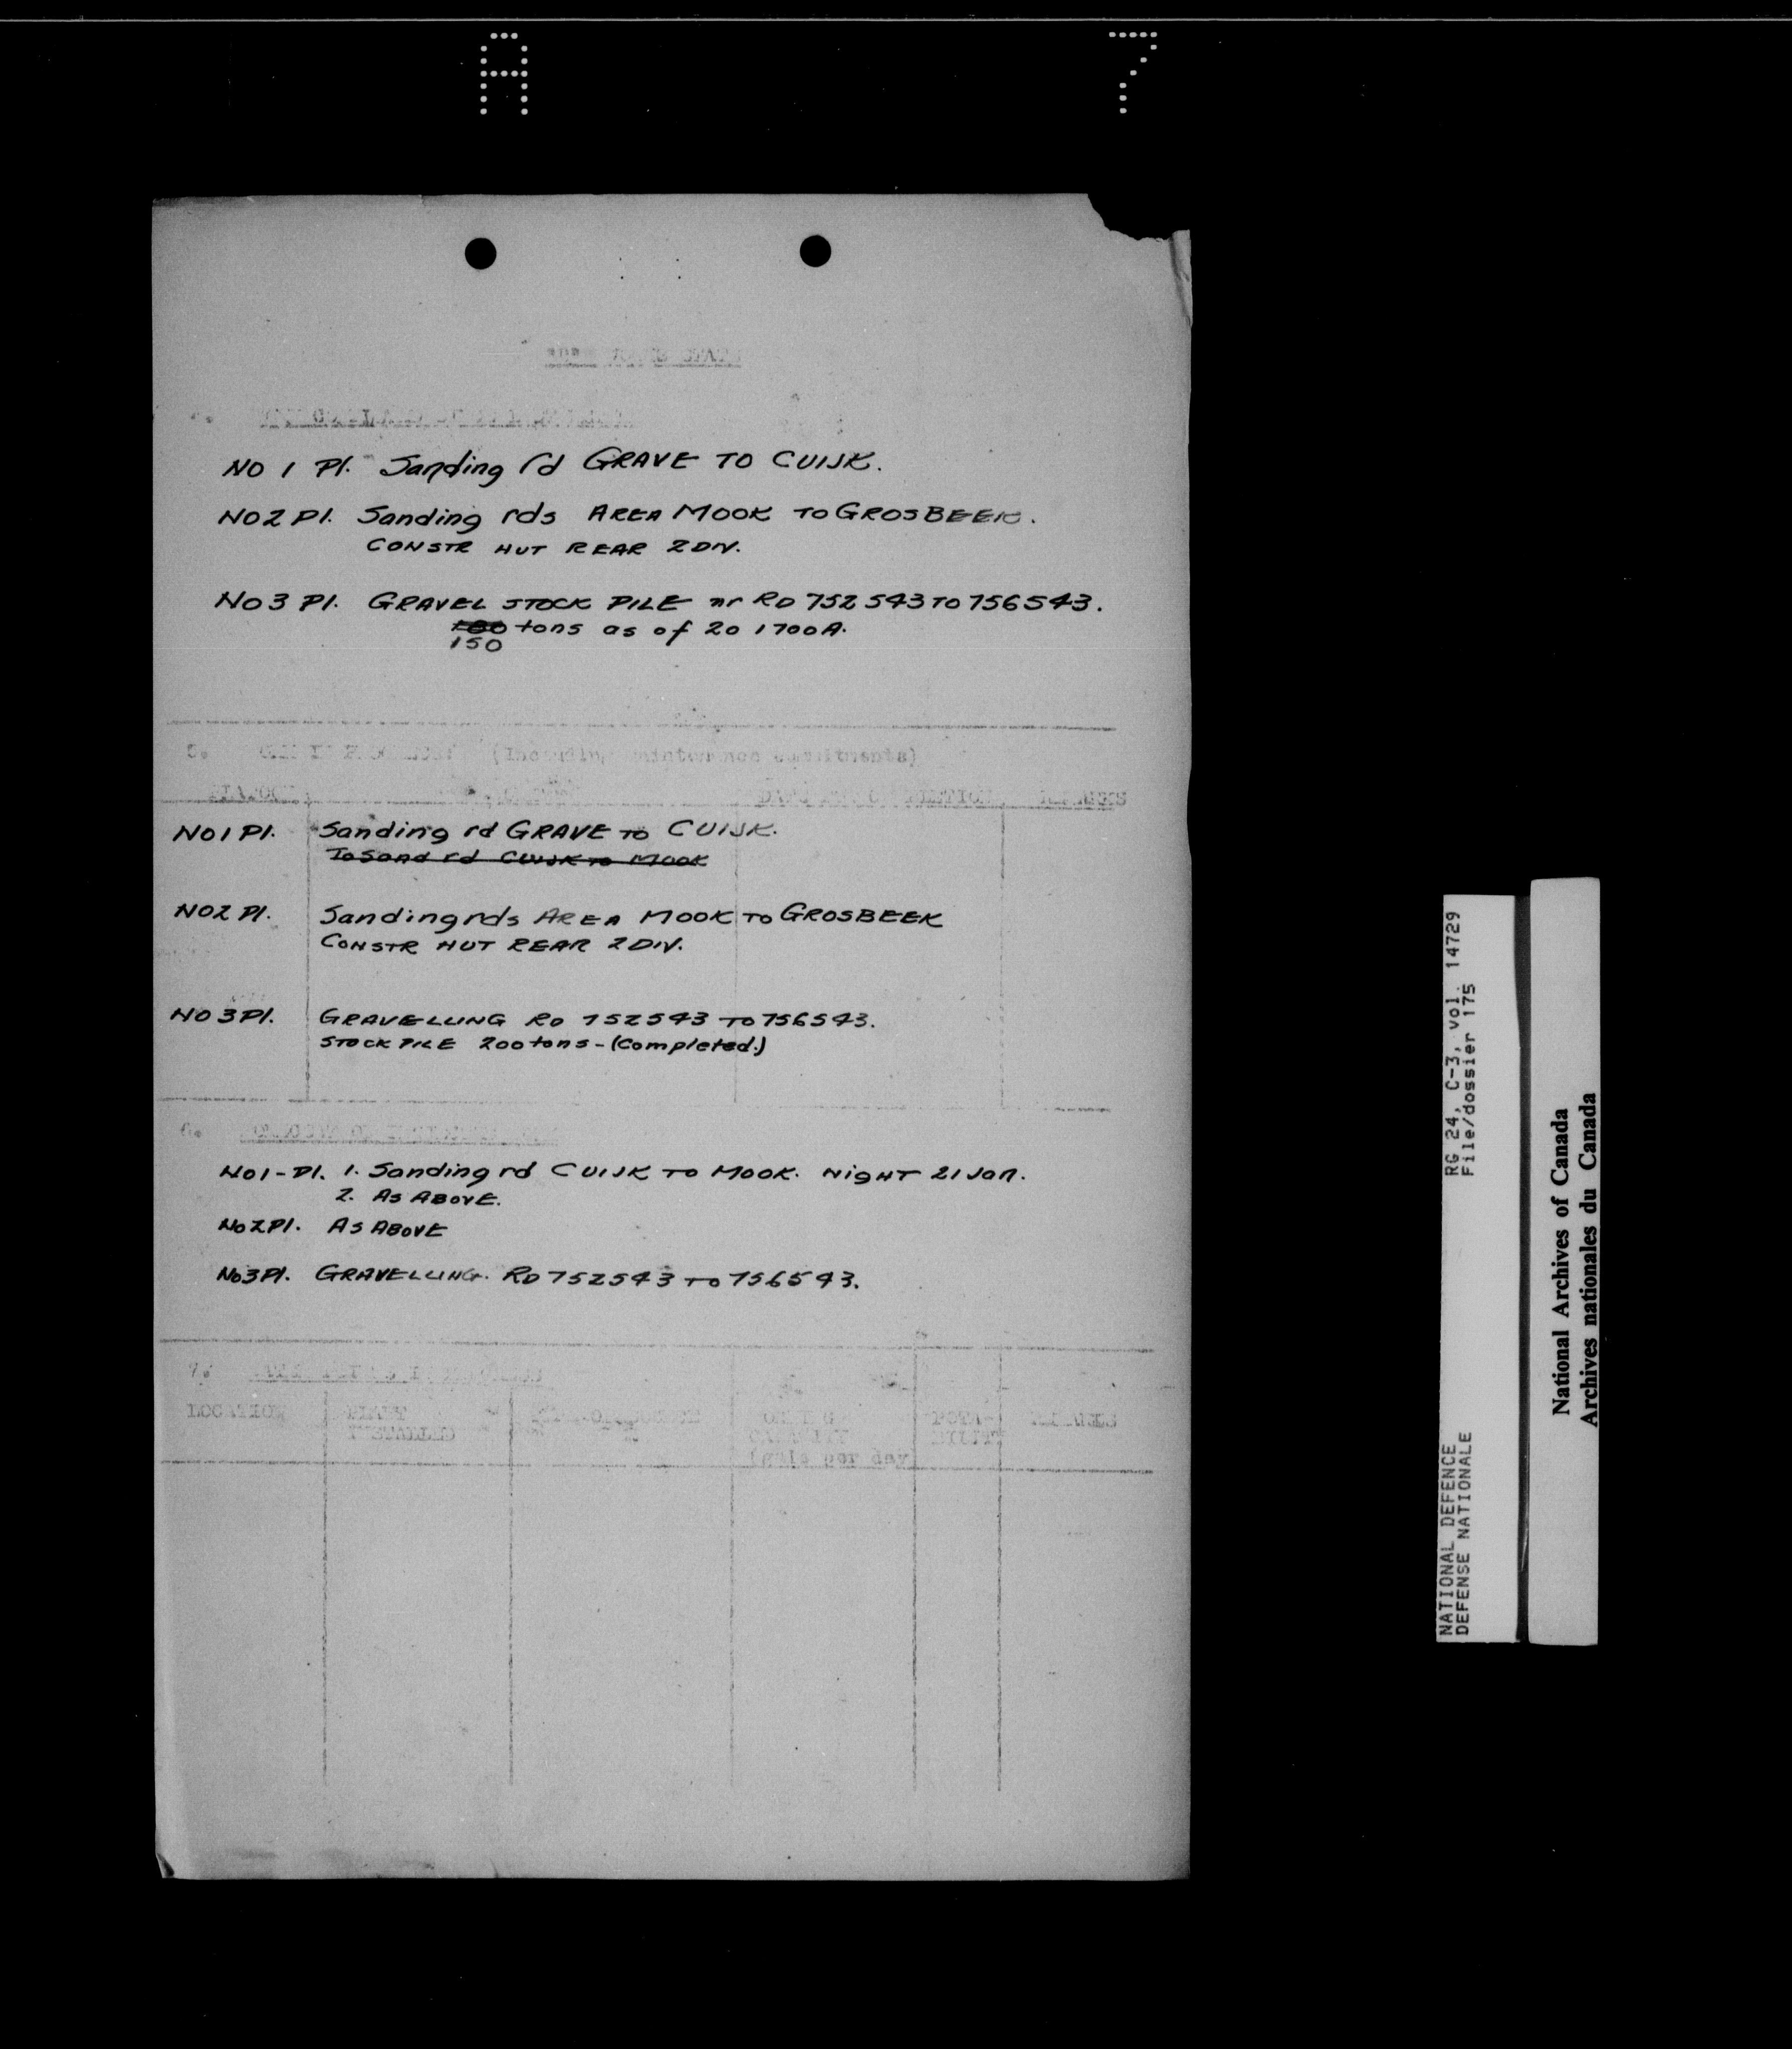 A 7
NO 1 Pl. Sanding rd GRAVE TO CUIJK.
NO 2 Pl. Sanding rds AREA MOOK TO GROSBEEK.
CONSTR HUT REAR 2 DIV.
NO 3 Pl. GRAVEL STOCK PILE nr RD 752543 TO 756543.
100 tons as of 20 1700A.
150
5. (Including maintenance commitments)
PLATOON REMARKS
NO 1 Pl. Sanding rd GRAVE TO CUIJK.
To Sand rd CUIJK to MOOK
NO 2 Pl. Sanding rds AREA MOOK TO GROSBEEK
CONSTR HUT REAR 2 DIV.
NO 3 Pl. GRAVELLING RD 752543 TO 756543.
STOCK PILE 200 tons - (Completed.)
6.
NO 1 - Pl. 1. Sanding rd CUIJK TO MOOK. NIGHT 21 Jan.
2. AS ABOVE.
No 2 Pl. AS ABOVE
No 3 Pl. GRAVELLING. RD 752543 TO 756543.
7.
LOCATION PLANT REMARKS
INSTALLED
(gals per day
RG 24, C-3, vol. 14729
File/dossier 175
NATIONAL DEFENCE
DEFENSE NATIONALE
National Archives of Canada
Archives nationales du Canada